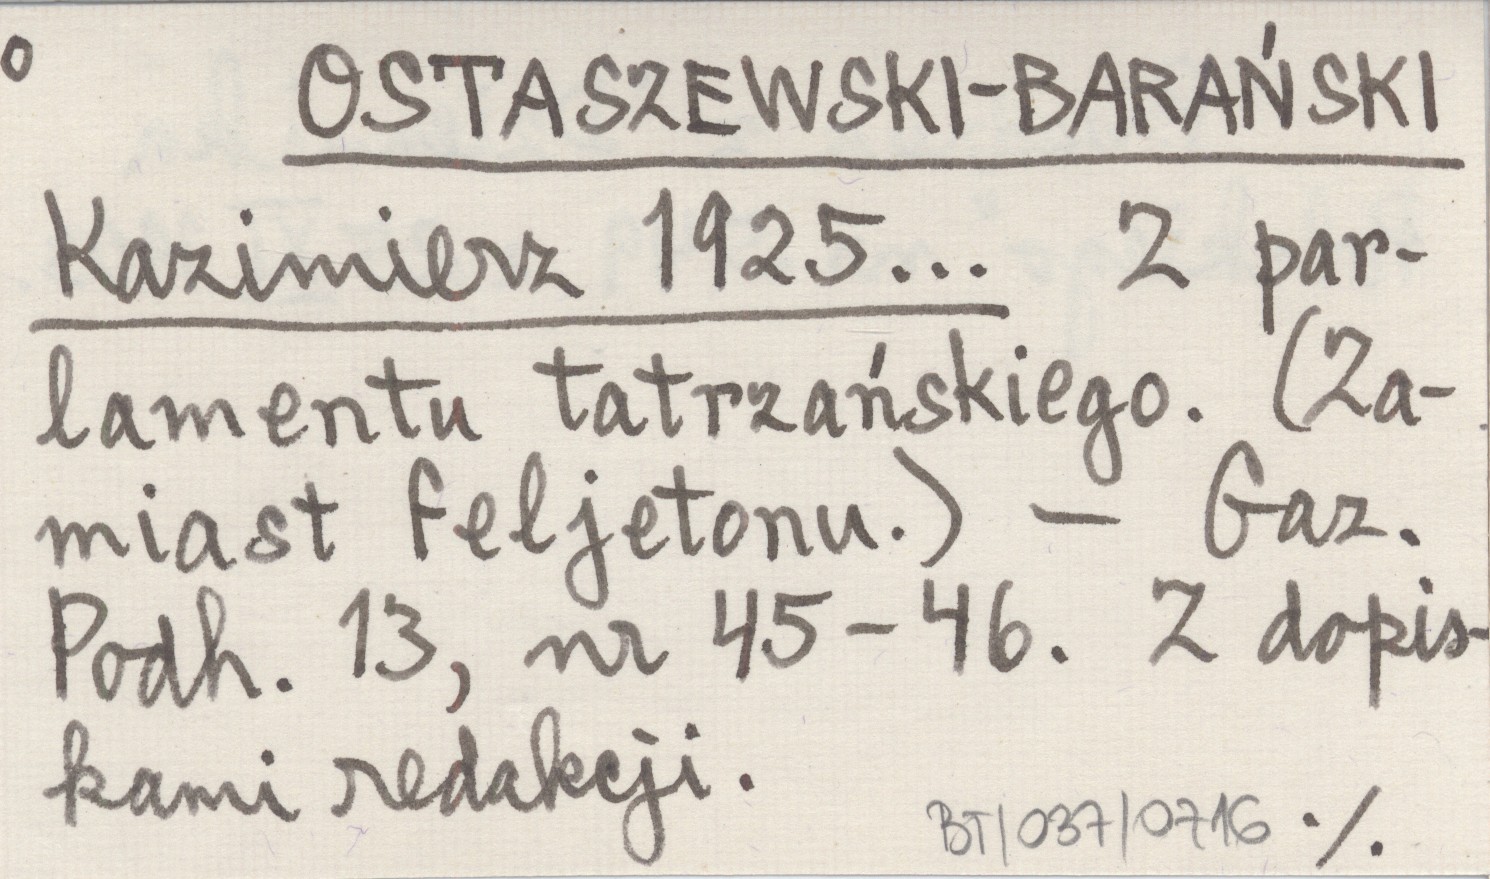 o
OSTASZEWSKI-BARAŃSKI
Kazimierz 1925... Z par-
lamentu tatrzańskiego. (Za-
miast feljetonu.) – Gaz.
Podh. 13, nr 45-46. Z dopis-
kami redakcji.
BT/037/0716 ./.